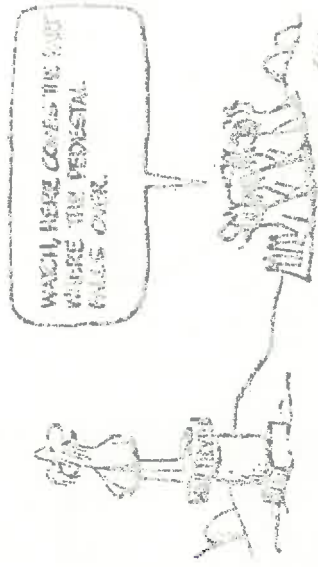 WATCH, HERE COMES THE PART
WHERE THE PEDESTAL
FALLS OVER.